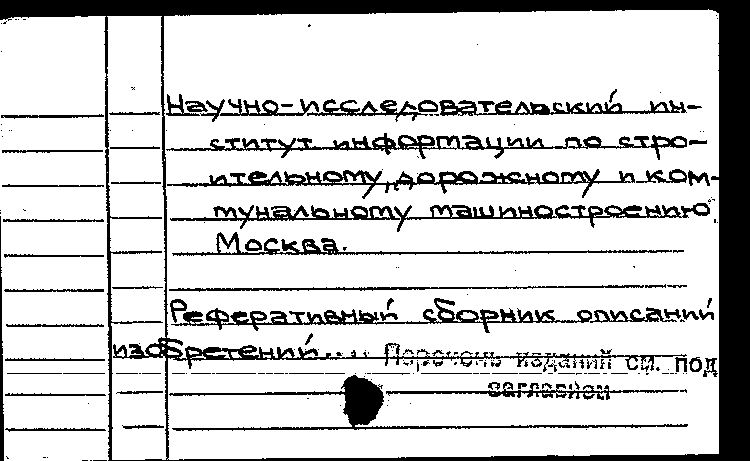 Научно-исследовательский ин-
ститут информации по стро-
ительному, дорожному и ком-
мунальному машиностроению.
Москва.
Реферативный сборник описаний
изобретений.... Перечень изданий см. под
заглавием